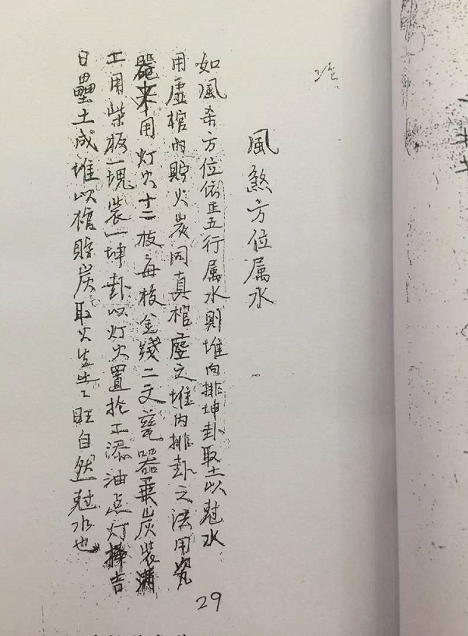 風煞方位属水
如風杀方位依正五行属水則堆内排坤卦取土以尅水
用虛棺内貯火炭同真棺塵之堆内排卦之法用瓷
器来用灯火十二枝每枝金錢二文瓷器乗炭装满
上用柴板一塊装一坤卦以灯火置於上添油点灯擇吉
日壘土成堆以棺貯炭取火生土々旺自然尅水也
29